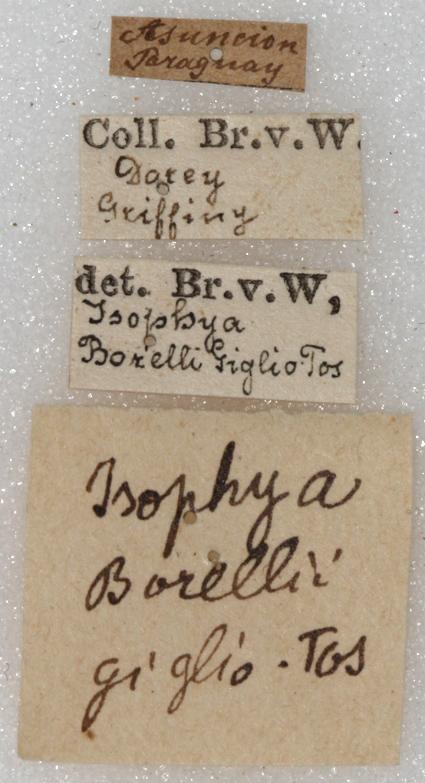 Asuncion
Paraguay
Coll. Br.v.W.
Dorey
Griffiny
det. Br.v.W,
Isophya
Borelli Giglio-Tos
Isophya
Borellii
giglio-Tos